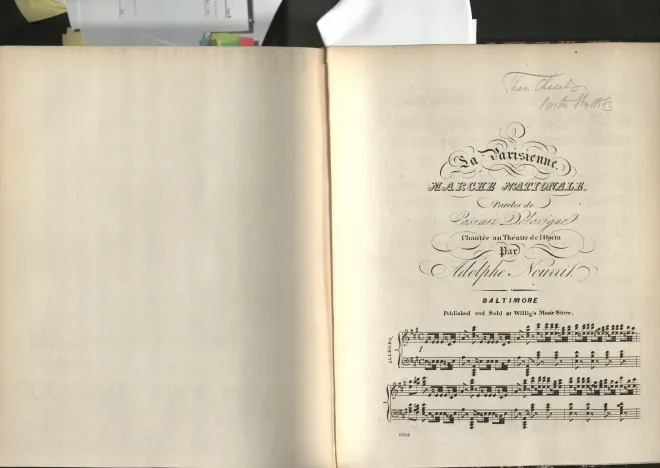 La Parisienne,
MARCHE NATIONALE,
Paroles de
Casimir Delavigne
Chantée au Théatre de l'Opéra
Par
Adolphe Nourrit.
BALTIMORE
Published and Sold at Willig's Music Store.
ALLEGRO.